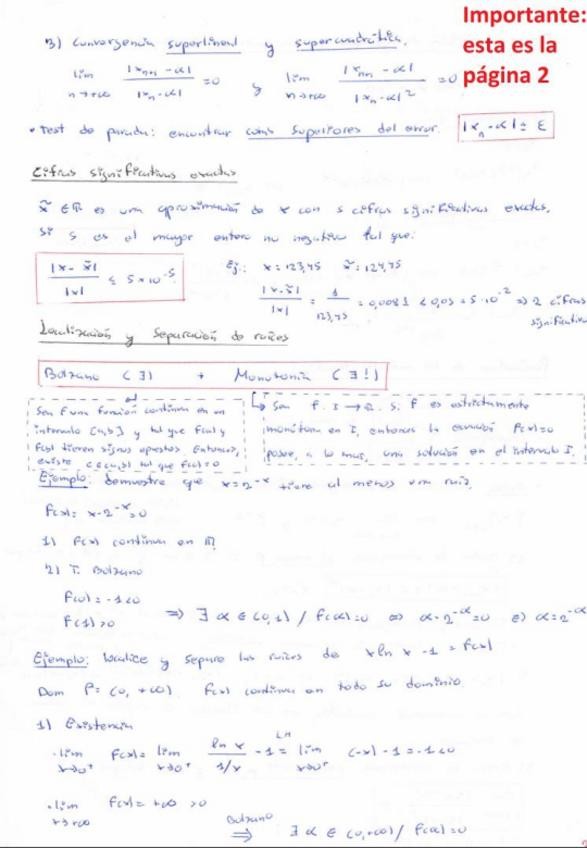 Importante:
esta es la
página 2
3) Convergencia superlineal y supercuadrática.
lim n→+∞ |xₙ₊₁ - α| / |xₙ - α| = 0 y lim n→+∞ |xₙ₊₁ - α| / |xₙ - α|² = 0
• Test de parada: encontrar cotas superiores del error. |xₙ - α| ≤ ε
Cifras significativas exactas
x̃ ∈ ℝ es una aproximación de x con s cifras significativas exactas,
si s es el mayor entero no negativo tal que:
|x - x̃| / |x| ≤ 5×10⁻ˢ
Ej: x = 123,45 x̃ = 124,45
|x - x̃| / |x| = 1 / 123,45 = 0,0081 < 0,05 = 5·10⁻² ⇒ 2 cifras
significativ
Localización y separación de raíces
Bolzano (∃) + Monotonía (∃!)
Sea f una función continua en un
intervalo [a,b] y tal que f(a) y
f(b) tienen signos opuestos. Entonces,
existe c ∈ (a,b) tal que f(c)=0
Sea f: I → ℝ. Si f es estrictamente
monótona en I, entonces la ecuación f(x)=0
posee, a lo más, una solución en el intervalo I.
Ejemplo: Demuestre que x = 2⁻ˣ tiene al menos una raíz.
f(x) = x - 2⁻ˣ = 0
1) f(x) continua en ℝ
2) T. Bolzano
f(0) = -1 < 0
f(1) > 0 ⇒ ∃ α ∈ (0,1) / f(α)=0 ⇔ α - 2^-α = 0 ⇔ α = 2^-α
Ejemplo: Localice y separe las raíces de x ln x - 1 = f(x)
Dom f = (0, +∞) f(x) continua en todo su dominio
1) Existencia
· lim x→0⁺ f(x) = lim x→0⁺ ln x / 1/x - 1 = L'H lim x→0⁺ (-x) - 1 = -1 < 0
· lim x→+∞ f(x) = +∞ > 0
Bolzano ⇒ ∃ α ∈ (0,+∞) / f(α)=0